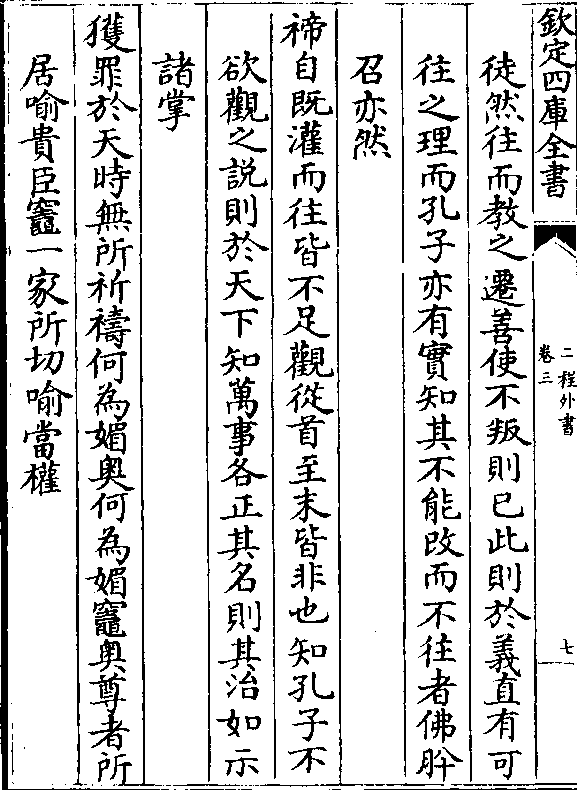 欽定四庫全書
二程外書
卷三
七
徒然往而教之遷善使不叛則已此則於義直有可
往之理而孔子亦有實知其不能改而不往者佛肸
召亦然
禘自既灌而往皆不足觀從首至末皆非也知孔子不
欲觀之說則於天下知萬事各正其名則其治如示
諸掌
獲罪於天時無所祈禱何為媚奧何為媚竈奥尊者所
居喻貴臣竈一家所切喻當權